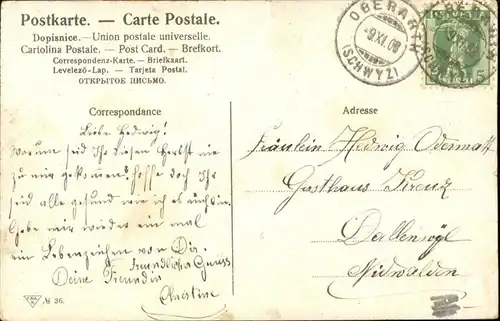 Postkarte. — Carte Postale.
Dopisnice.—Union postale universelle.
Cartolina Postale. — Post Card. — Brefkort.
Correspondenz-Karte. — Briefkaart.
Levelező-Lap. — Tarjeta Postal.
ОТКРЫТОЕ ПИСЬМО.
OBERARTH
9.XI.08
(SCHWYZ)
5
Correspondance
Adresse
Liebe Hedwig!
Warum seid Ihr diesen Herbst nie
zu mir gekommen? hoffe doch Ihr
seid alle gesund wie ich es auch bin.
Gebe mir wieder ein mal
ein Lebenzeichen von Dir.
Freundlicher Gruss
Deine Freundin
Christine
Fräulein Hedwig Odermatt
Gasthaus Kreuz
Dallenwyl
Nidwalden
№ 36.